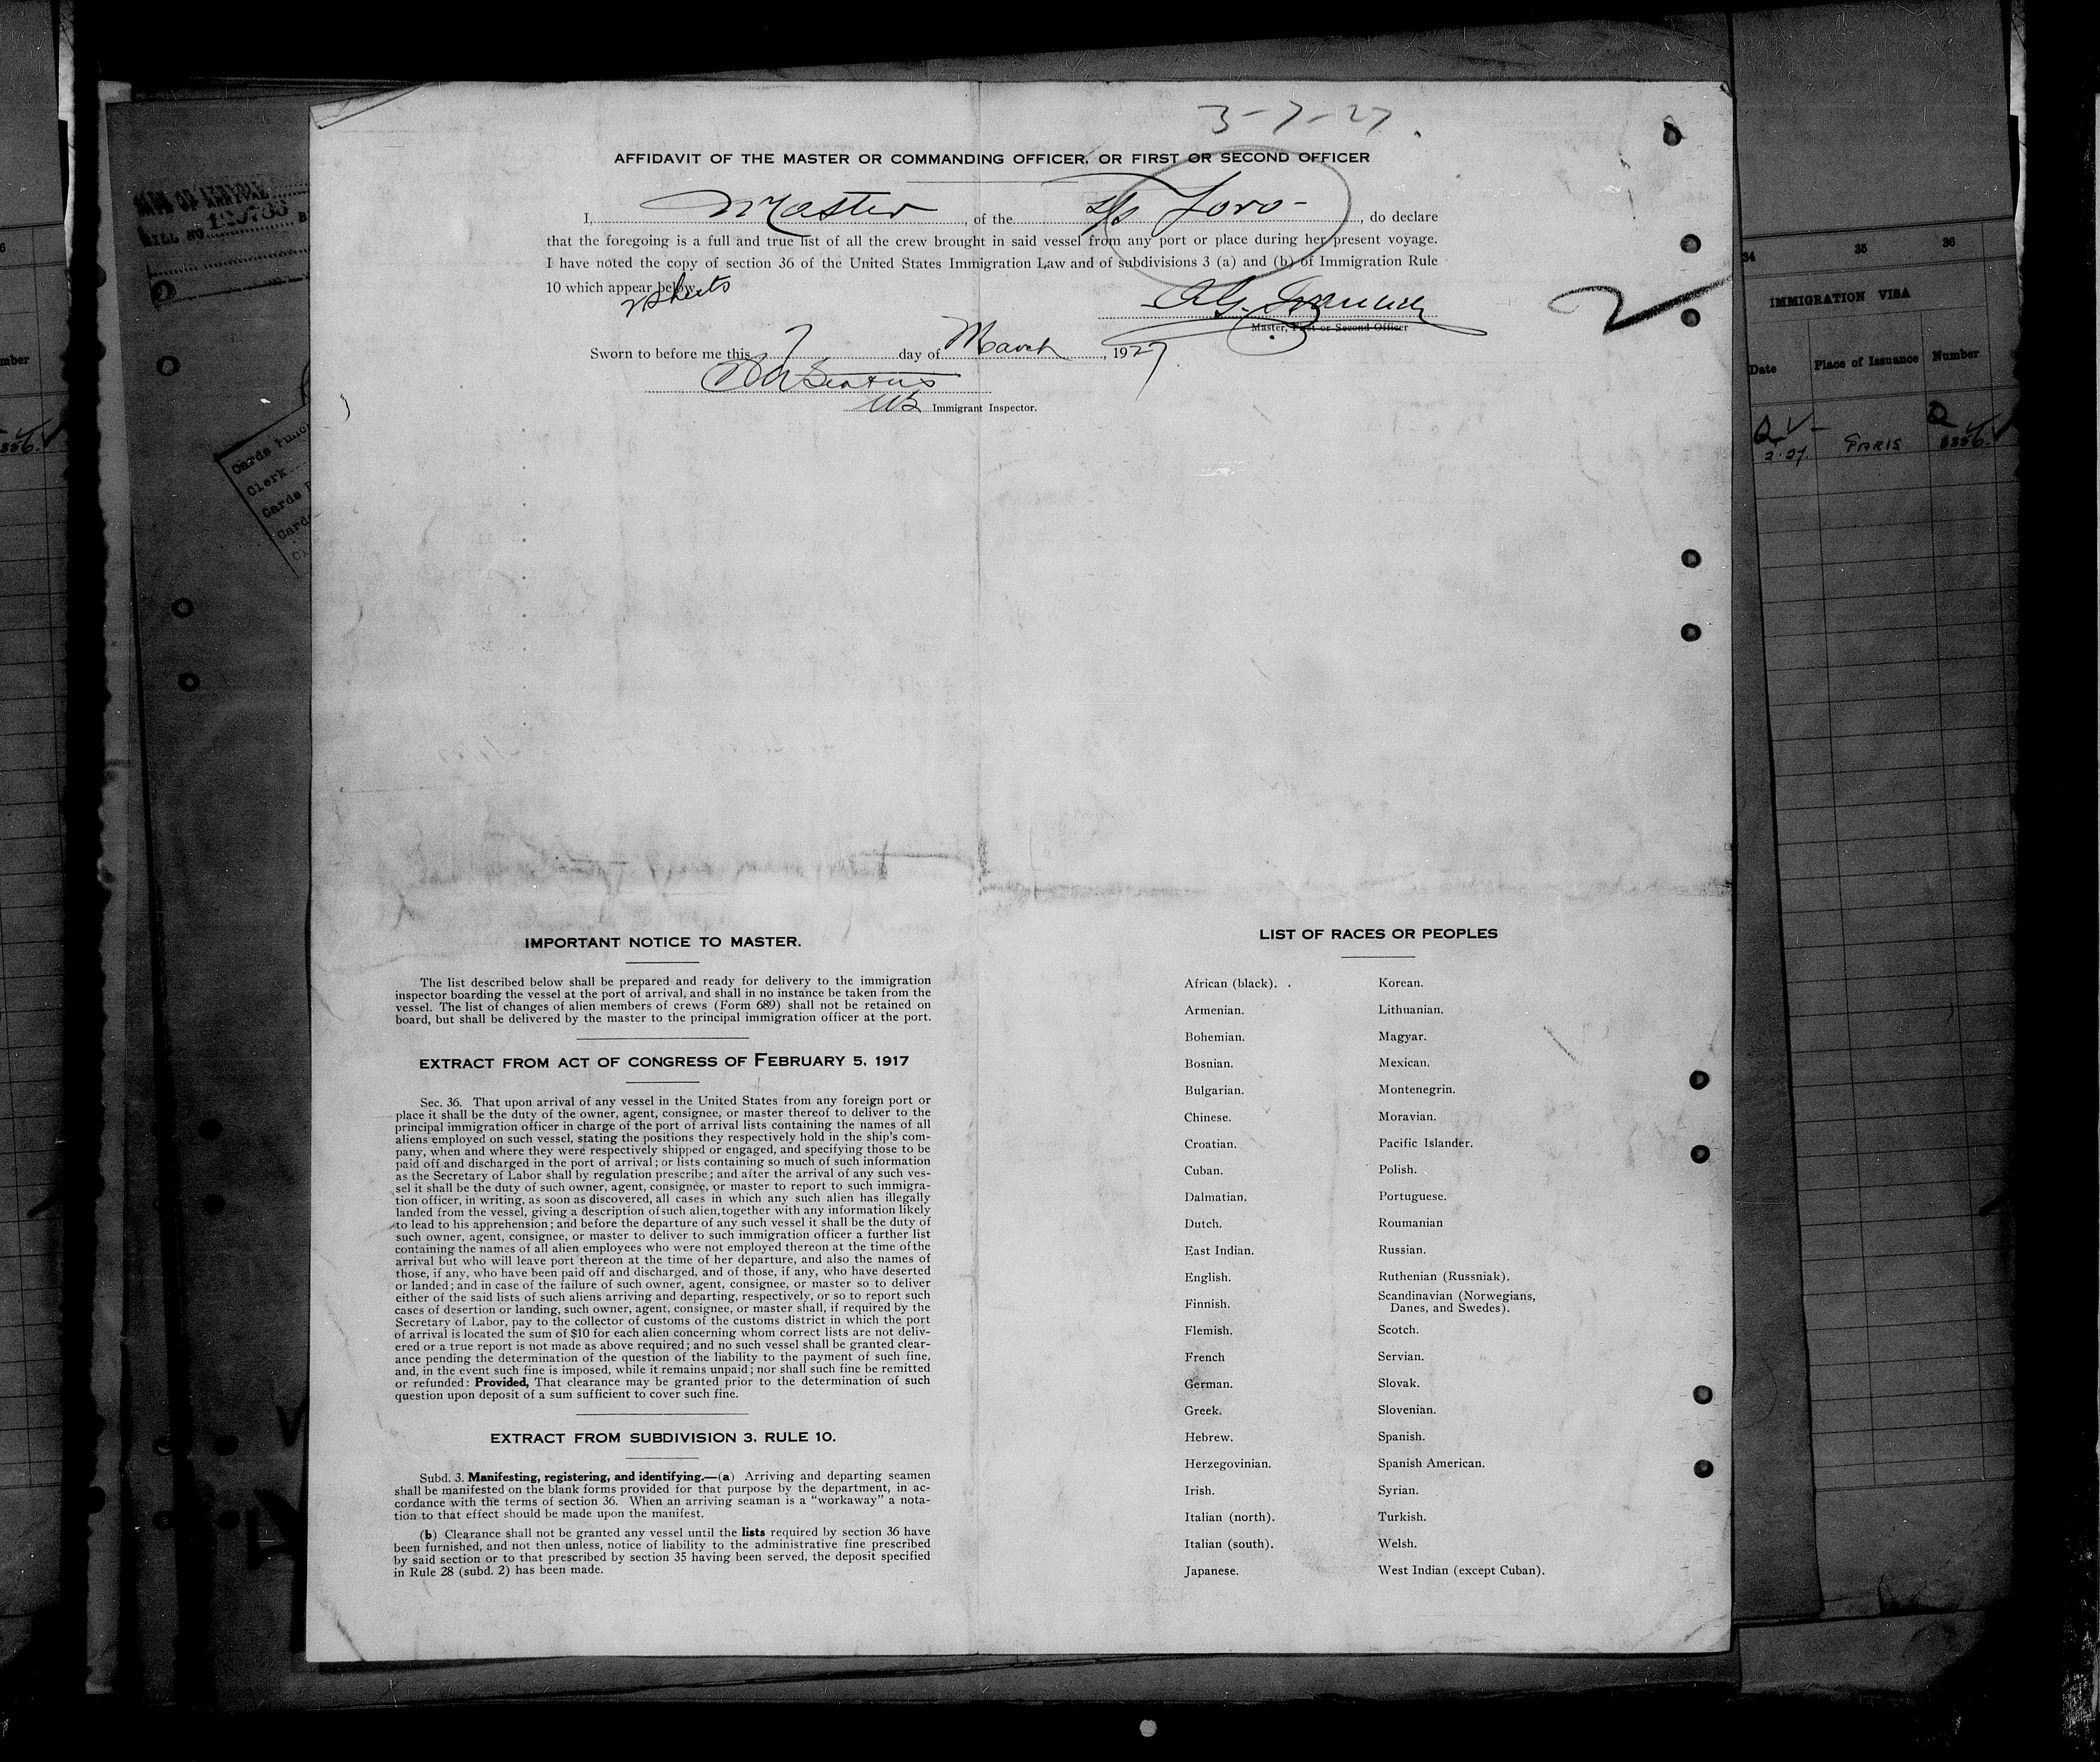 3-7-27.
AFFIDAVIT OF THE MASTER OR COMMANDING OFFICER, OR FIRST OR SECOND OFFICER
I, Master, of the s/s Toro, do declare
that the foregoing is a full and true list of all the crew brought in said vessel from any port or place during her present voyage.
I have noted the copy of section 36 of the United States Immigration Law and of subdivisions 3 (a) and (b) of Immigration Rule
10 which appear below.
2 sheets
Master, First or Second Officer
2
Sworn to before me this 7 day of March, 1927
US Immigrant Inspector.
IMPORTANT NOTICE TO MASTER.
The list described below shall be prepared and ready for delivery to the immigration
inspector boarding the vessel at the port of arrival, and shall in no instance be taken from the
vessel. The list of changes of alien members of crews (Form 689) shall not be retained on
board, but shall be delivered by the master to the principal immigration officer at the port.
EXTRACT FROM ACT OF CONGRESS OF FEBRUARY 5, 1917
Sec. 36. That upon arrival of any vessel in the United States from any foreign port or
place it shall be the duty of the owner, agent, consignee, or master thereof to deliver to the
principal immigration officer in charge of the port of arrival lists containing the names of all
aliens employed on such vessel, stating the positions they respectively hold in the ship's com-
pany, when and where they were respectively shipped or engaged, and specifying those to be
paid off and discharged in the port of arrival; or lists containing so much of such information
as the Secretary of Labor shall by regulation prescribe; and after the arrival of any such ves-
sel it shall be the duty of such owner, agent, consignee, or master to report to such immigra-
tion officer, in writing, as soon as discovered, all cases in which any such alien has illegally
landed from the vessel, giving a description of such alien, together with any information likely
to lead to his apprehension; and before the departure of any such vessel it shall be the duty of
such owner, agent, consignee, or master to deliver to such immigration officer a further list
containing the names of all alien employees who were not employed thereon at the time of the
arrival but who will leave port thereon at the time of her departure, and also the names of
those, if any, who have been paid off and discharged, and of those, if any, who have deserted
or landed; and in case of the failure of such owner, agent, consignee, or master so to deliver
either of the said lists of such aliens arriving and departing, respectively, or so to report such
cases of desertion or landing, such owner, agent, consignee, or master shall, if required by the
Secretary of Labor, pay to the collector of customs of the customs district in which the port
of arrival is located the sum of $10 for each alien concerning whom correct lists are not deliv-
ered or a true report is not made as above required; and no such vessel shall be granted clear-
ance pending the determination of the question of the liability to the payment of such fine,
and, in the event such fine is imposed, while it remains unpaid; nor shall such fine be remitted
or refunded: Provided, That clearance may be granted prior to the determination of such
question upon deposit of a sum sufficient to cover such fine.
EXTRACT FROM SUBDIVISION 3, RULE 10.
Subd. 3. Manifesting, registering, and identifying.—(a) Arriving and departing seamen
shall be manifested on the blank forms provided for that purpose by the department, in ac-
cordance with the terms of section 36. When an arriving seaman is a "workaway" a nota-
tion to that effect should be made upon the manifest.
(b) Clearance shall not be granted any vessel until the lists required by section 36 have
been furnished, and not then unless, notice of liability to the administrative fine prescribed
by said section or to that prescribed by section 35 having been served, the deposit specified
in Rule 28 (subd. 2) has been made.
LIST OF RACES OR PEOPLES
African (black).
Armenian.
Bohemian.
Bosnian.
Bulgarian.
Chinese.
Croatian.
Cuban.
Dalmatian.
Dutch.
East Indian.
English.
Finnish.
Flemish.
French
German.
Greek.
Hebrew.
Herzegovinian.
Irish.
Italian (north).
Italian (south).
Japanese.
Korean.
Lithuanian.
Magyar.
Mexican.
Montenegrin.
Moravian.
Pacific Islander.
Polish.
Portuguese.
Roumanian
Russian.
Ruthenian (Russniak).
Scandinavian (Norwegians,
Danes, and Swedes).
Scotch.
Servian.
Slovak.
Slovenian.
Spanish.
Spanish American.
Syrian.
Turkish.
Welsh.
West Indian (except Cuban).
34 35 36
IMMIGRATION VISA
Date Place of Issuance Number
PARIS
OF ARRIVAL
BILL NO.
Cards Punc
Clerk
Cards
Card
mber